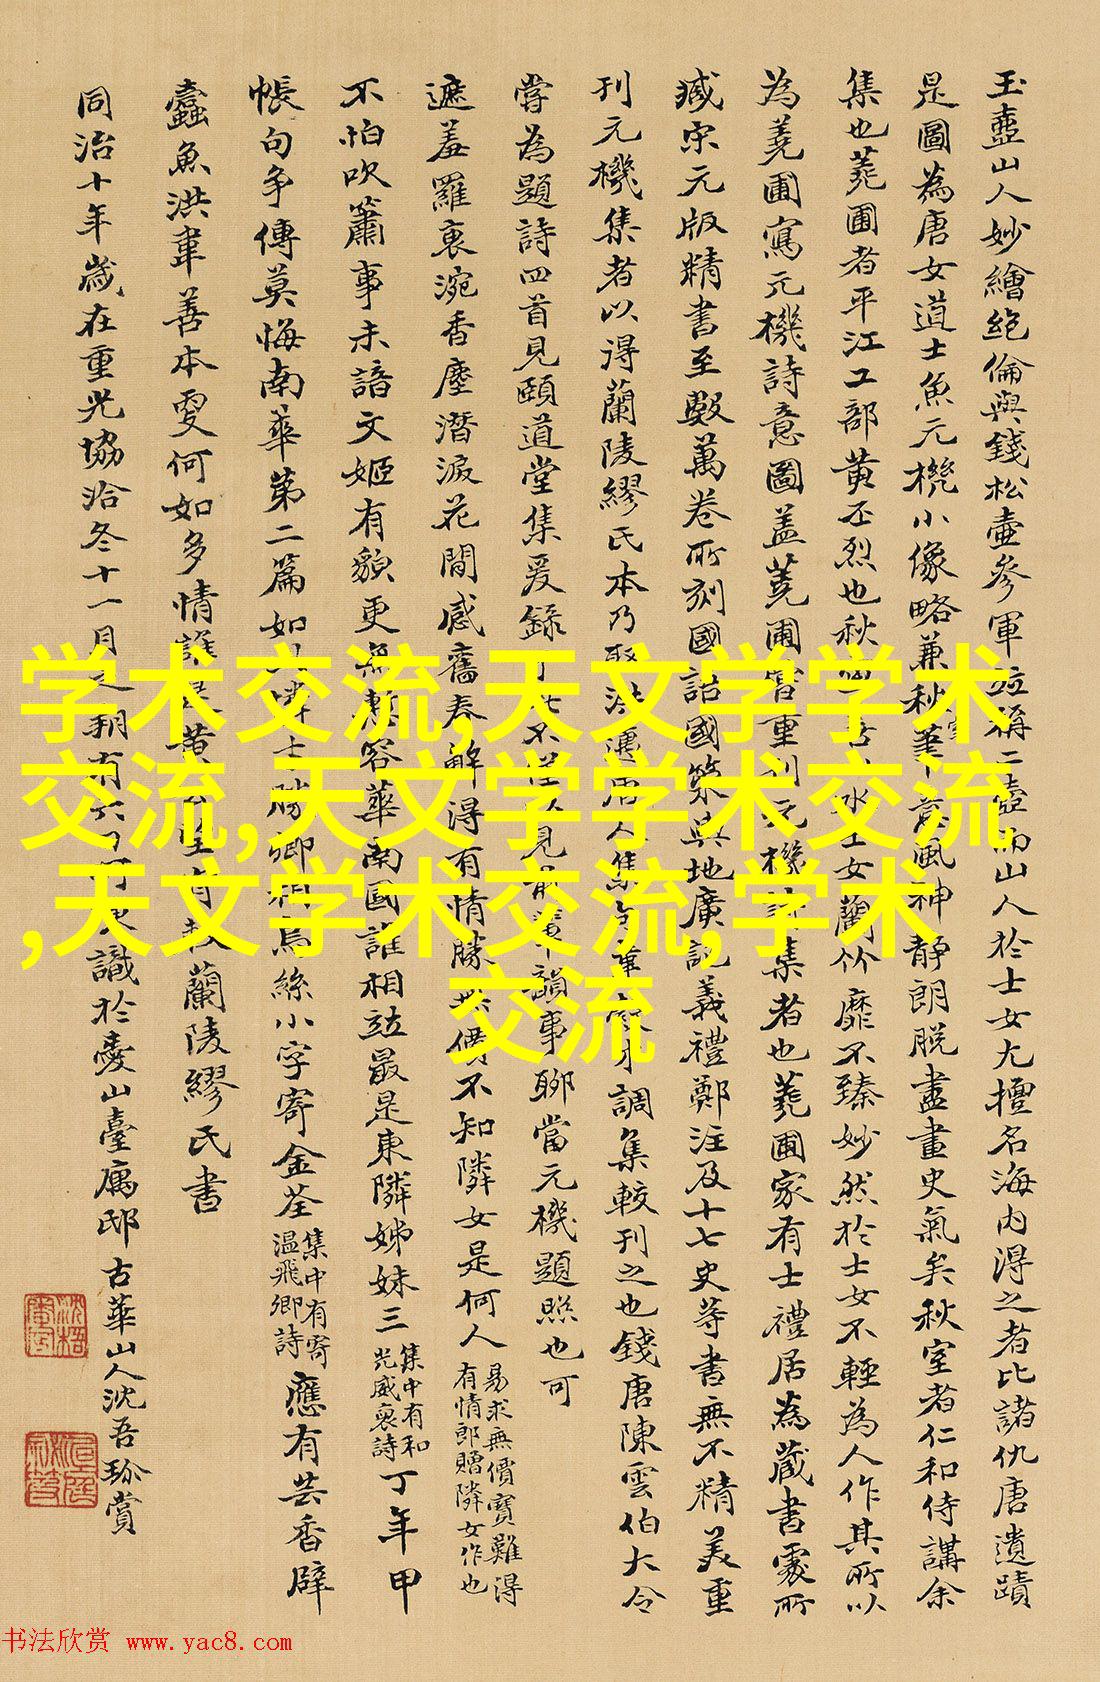 玉壺山人妙繪絕倫與錢松壺參軍竝稱二壺而山人於士女尤擅名海內得之者比諸仇唐遺蹟
是圖為唐女道士魚元機小像略兼秋室筆意風神靜朗脫盡畫史氣矣秋室者仁和侍講余
集也蕘圃者平江工部黃丕烈也秋水士女蘭竹靡不臻妙然於士女不輕為人作其所以
為蕘圃寫元機詩意圖蓋蕘圃嘗重刊元機詩集者也蕘圃家有士禮居為藏書處所
臧宋元版精書至數萬卷所刻國語國策與地廣記義禮鄭注及十七史等書無不精美重
刊元機集者以得蘭陵繆氏本乃調集較刊之也錢唐陳雲伯大令
嘗為題詩四首見頤道堂集爰錄於此不僅以見前輩韻事聊當元機題照也可
遮羞羅裹涴香塵潛淚花間感舊春解得有情勝無價不知隣女是何人易求無價寶難得有情郎贈隣女作也
不怕吹簫事未諳文姬有貌更無容華南國誰相竝最是東隣姊妹三集中有和光威裒詩丁年甲
帳句爭傳莫悔南華第二篇如士勝卿相烏絲小字寄金荃集中有寄温飛卿詩應有芸香辟
蠹魚洪韋善本更何如多情誰是黃蘭陵繆氏書
同治十年歲在重光協洽冬十一月之朔有六日識於山臺寓邸古華山人沈吾珍賞
学术交流,天文学学术
交流,天文学学术交流
,天文学术交流,学术
交流
书法欣赏 www.yac8.com